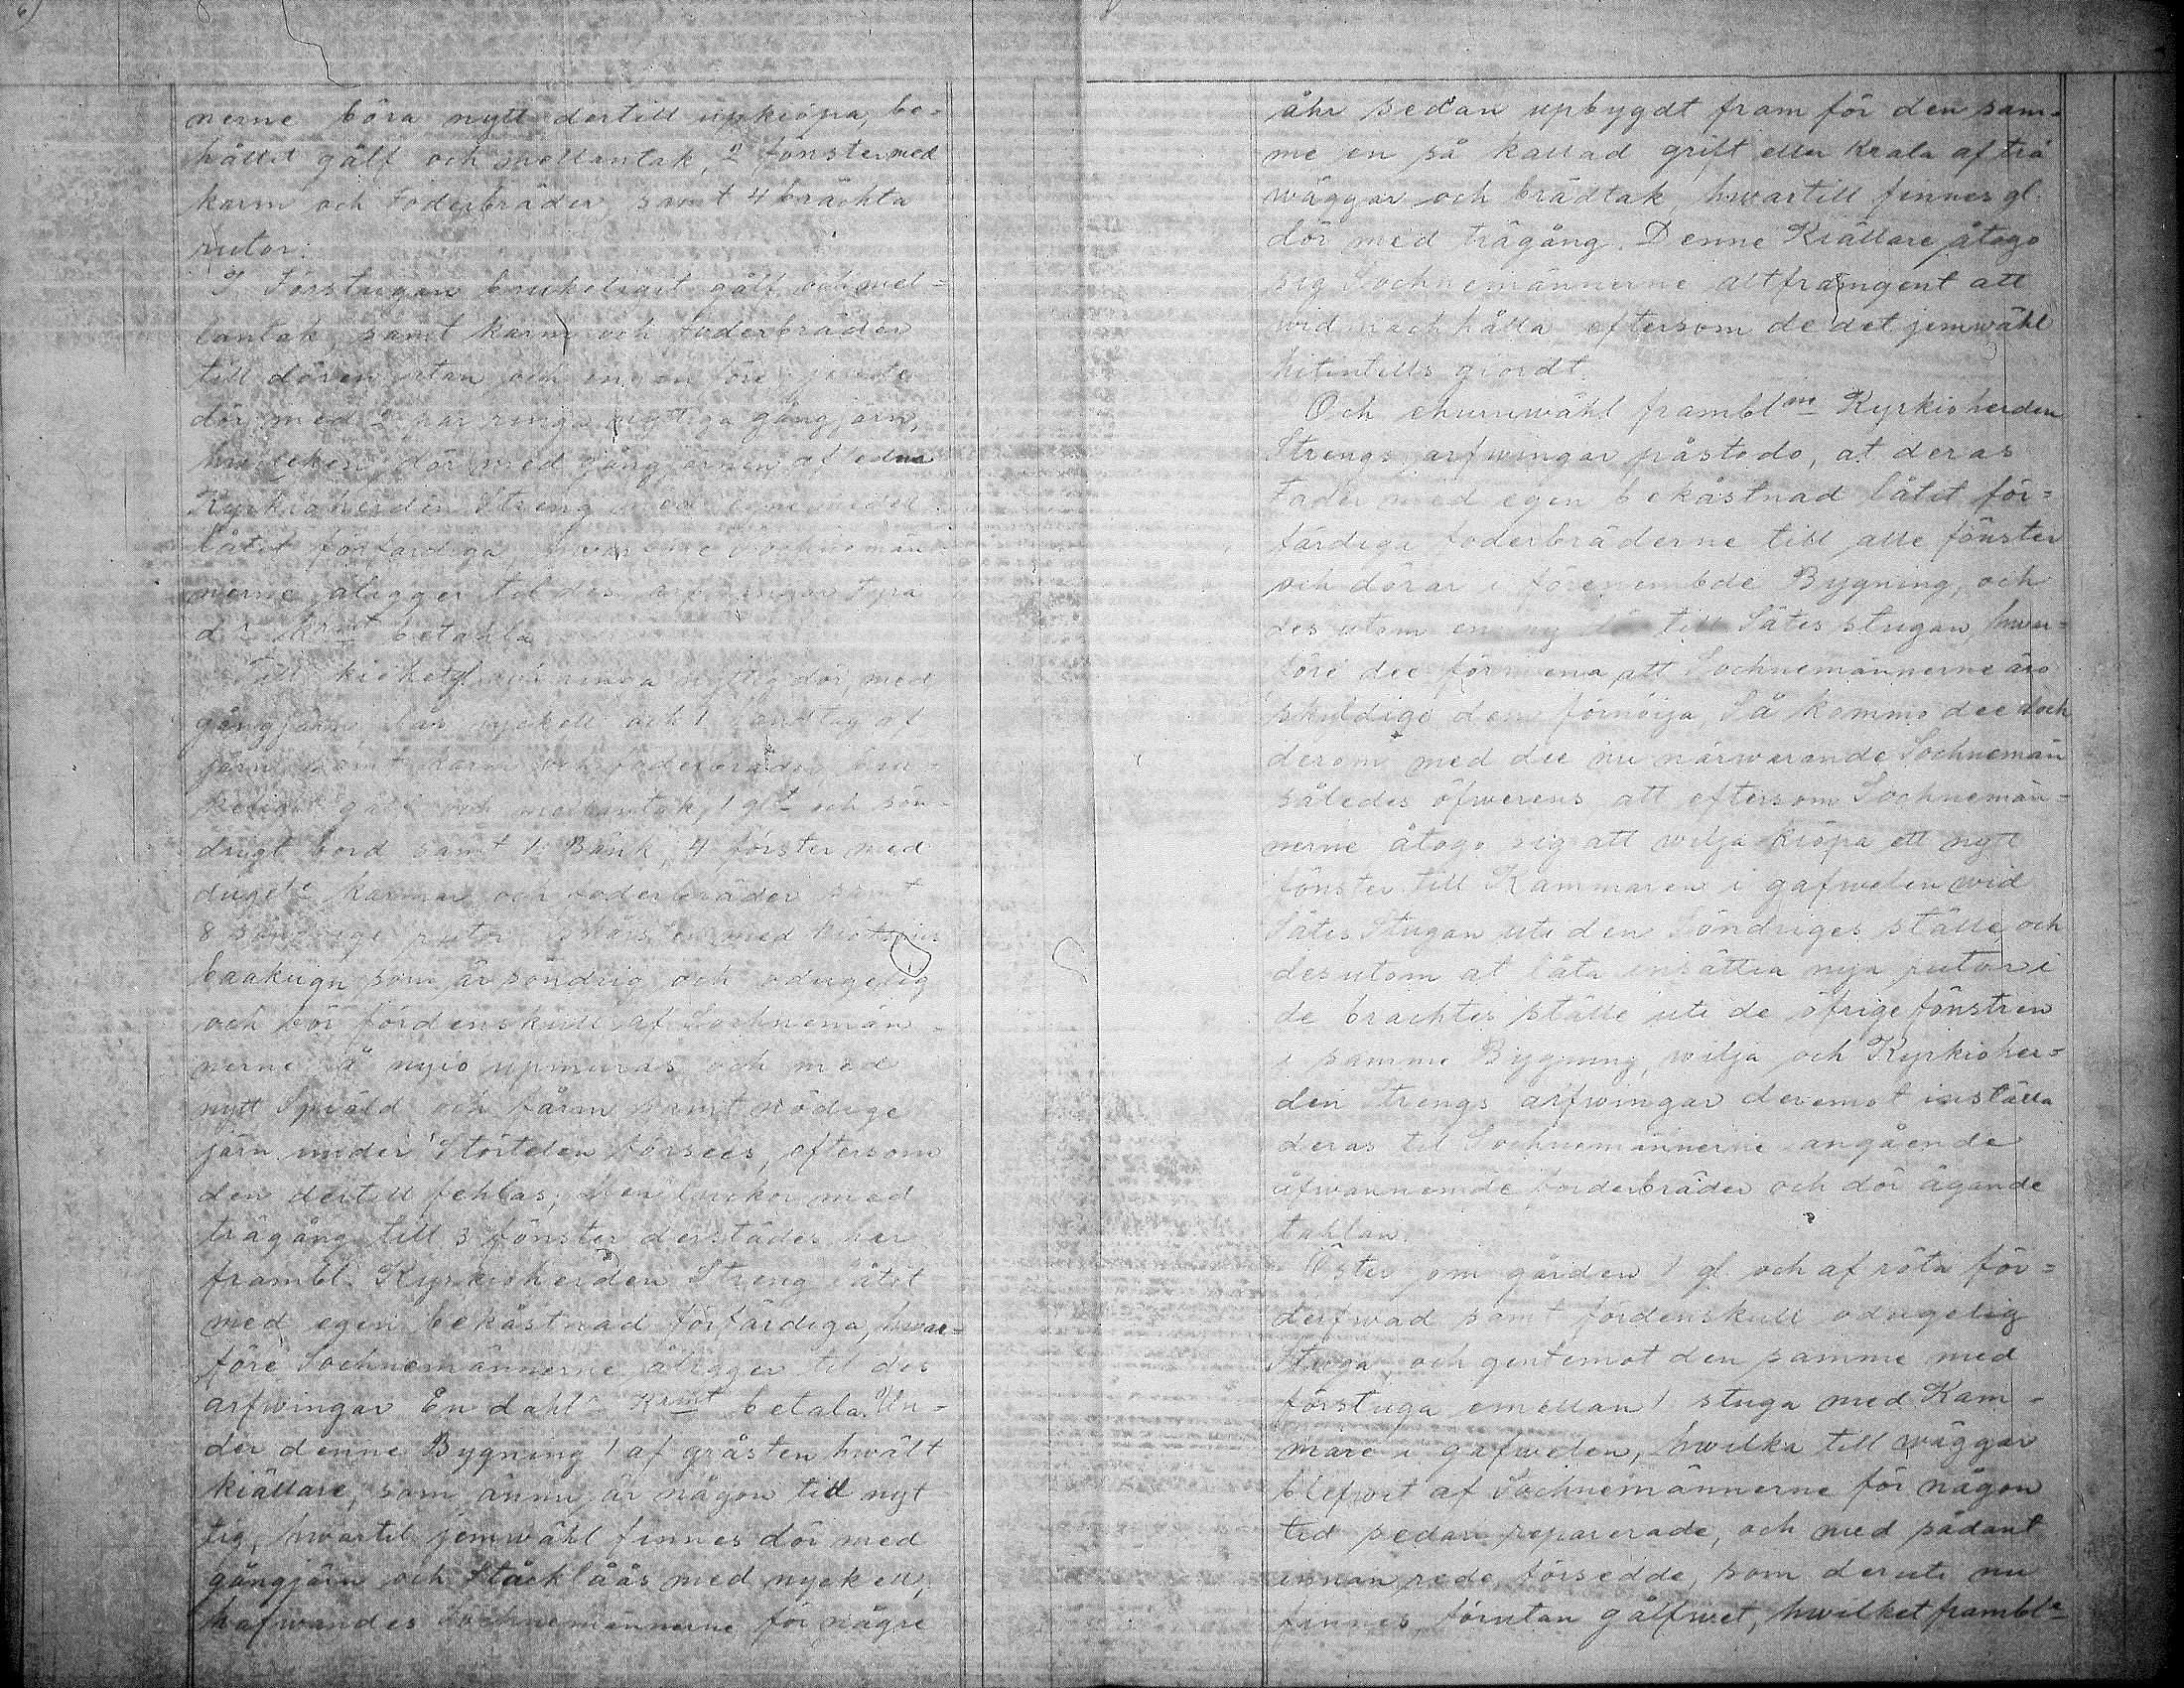 nerne böra nytt dertill upkiöpa, be-
hållit gålf och mellantak, 2 fönster med
karm och foderbräder, samt 4 brächta
rutor.
I Förstugan brukeligit gålf och mel-
lantak, samt karm och foderbräder
till dören utan och innan före
dör med 2 par ringa nyttiga gångjärn,
hwilcken dör med gångjärnen
Kyrkioherden Streng med egne medel
låtit förfärdiga, Sochnemän-
nerne åligger til des arfwingar Fyra
d:r k:rmt betahla
Till kiöket gl. och ringa nyttig dör, med
gångjärn, lås nyckell och 1 af
järn, samt karm och foderbräder, bru-
keligit gålf och mellantak, 1 glt och sön-
drigt bord samt 1 Bänk, 4 fönster med
dugel:e karmar och foderbräder samt
8 söndrige rutor, med
baakugn som är söndrig och odugelig
och bör fördenskull af Sochnemän-
nerne å nyio upmuras och med
nytt Spiäld och samt nödige
järn under Störtelen försees, eftersom
den dertill fehlas; Men luckor med
trägång till 3 fönster derstädes har
frambl. Kyrkioherden Streng låtit
med egen bekåstnad förfärdiga, hwar-
före Sochnemännerne åligger til des
arfwingar En dahl:r K:rmt betala. Un-
der denne Bygning 1 af gråsten hwält
kiällare, som ännu är någon till nyt
tig, hwartil jemwähl finnes dör med
gångjärn och Ståcklåås med nyckell,
hafwandes Sochnemännerne för någre
åhr sedan upbygdt fram för den sam-
me en så kallad grift eller Krala af trä
wäggar och brädtak, hwartill finnes gl.
dör med trägång. Denne Kiällare åtogo
sig Sochnemännerne altframgent att
wid macht hålla eftersom de det jemwähl
hitintills giordt.
Och ehuruwähl frambl:ne Kyrkioherden
Strengs arfwingar påstodo, at deras
Fader med egen bekåstnad låtit för-
färdiga foderbräderne till alle fönster
och dörar i förenembde Bygning, och
des utom en ny dör till Sätesstugan, hwar-
före dee förmena att Sochnemännerne äro
skyldige dem förnöija, Så kommo dee doch
derom med dee nu närwarande Sochnemän
således öfwerens, att eftersom Sochnemän-
nerne åtogo sig att wilja kiöpa ett nytt
fönster till Kammaren i gafwelen wid
Sätes Stugan uti den Söndriges ställe, och
desutom at låta insättia nya rutor i
de brachtes ställe uti de öfrige fönstren
i samme Bygning, wilja och Kyrkioher-
den Strengs arfwingar deremot inställa
deras til Sochnemännerne angående
åfwannemde foderbräder och dör ägande
tahlan.
Öster om gården 1 gl. och af röta för-
derfwad samt fördenskull odugelig
Stuga och gentemot den samme med
förstuga emellan 1 stuga med Kam-
mare i gafwelen, hwilka till wäggar
blefwet af Sochnemännerne för någon
tid sedan reparerade, och med sådant
innan rede försedde, som deruti nu
finnes förutan gålfwet, hwilket frambl:e